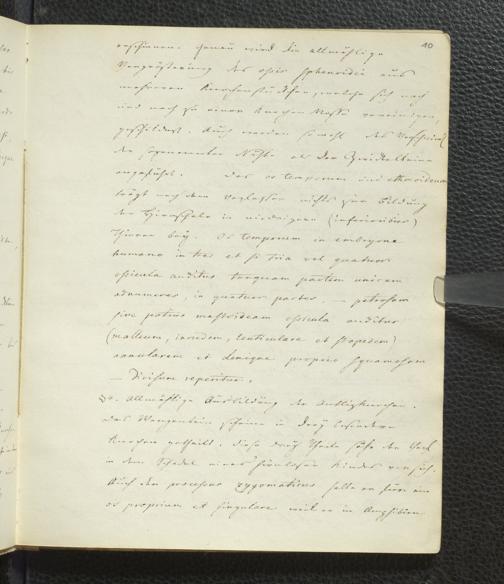 10
erschienen. Genau wird die allmählige
Vergrößerung des ossis sphenoidei aus
mehreren Knochenstückchen, welche sich nach
und nach zu einer Knochen Masse vereinigen,
geschildert. Auch werden sowohl das Verschwin
der sogenannten Nähte als der Zwickelbeine
angeführt. Das os temporum und ethmoideum
trägt nach dem Verfasser nichts zur Bildung
der Hirnschale in niedrigern (inferioribus)
Thieren bey. Os temporum in embryone
humano in tres et si tria vel quatuor
ossicula auditus tanquam partem unicam
adnumeres, in quatuor partes. — petrosam
sive potius mastoideam ossicula auditus
(malleum, incudem, lenticulare et stapedem)
annularem et denique proprie squamosam
— divisum reperitur.
allmählige Ausbildung der Antlitzknochen.
Das Wangenbein scheine in drey besondere
Knochen getheilt. diese drey Theile sehe der Verf.
in dem Schedel eines Kindes
Auch den processus zygomaticus halte er für ein
os proprium et singulare weil er in Amphibien